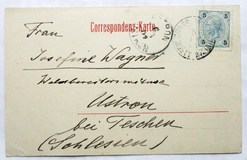 Correspondenz-Karte
5 5
Frau
Josefine Wagner
Ustron
bei Teschen
(Schlesien)